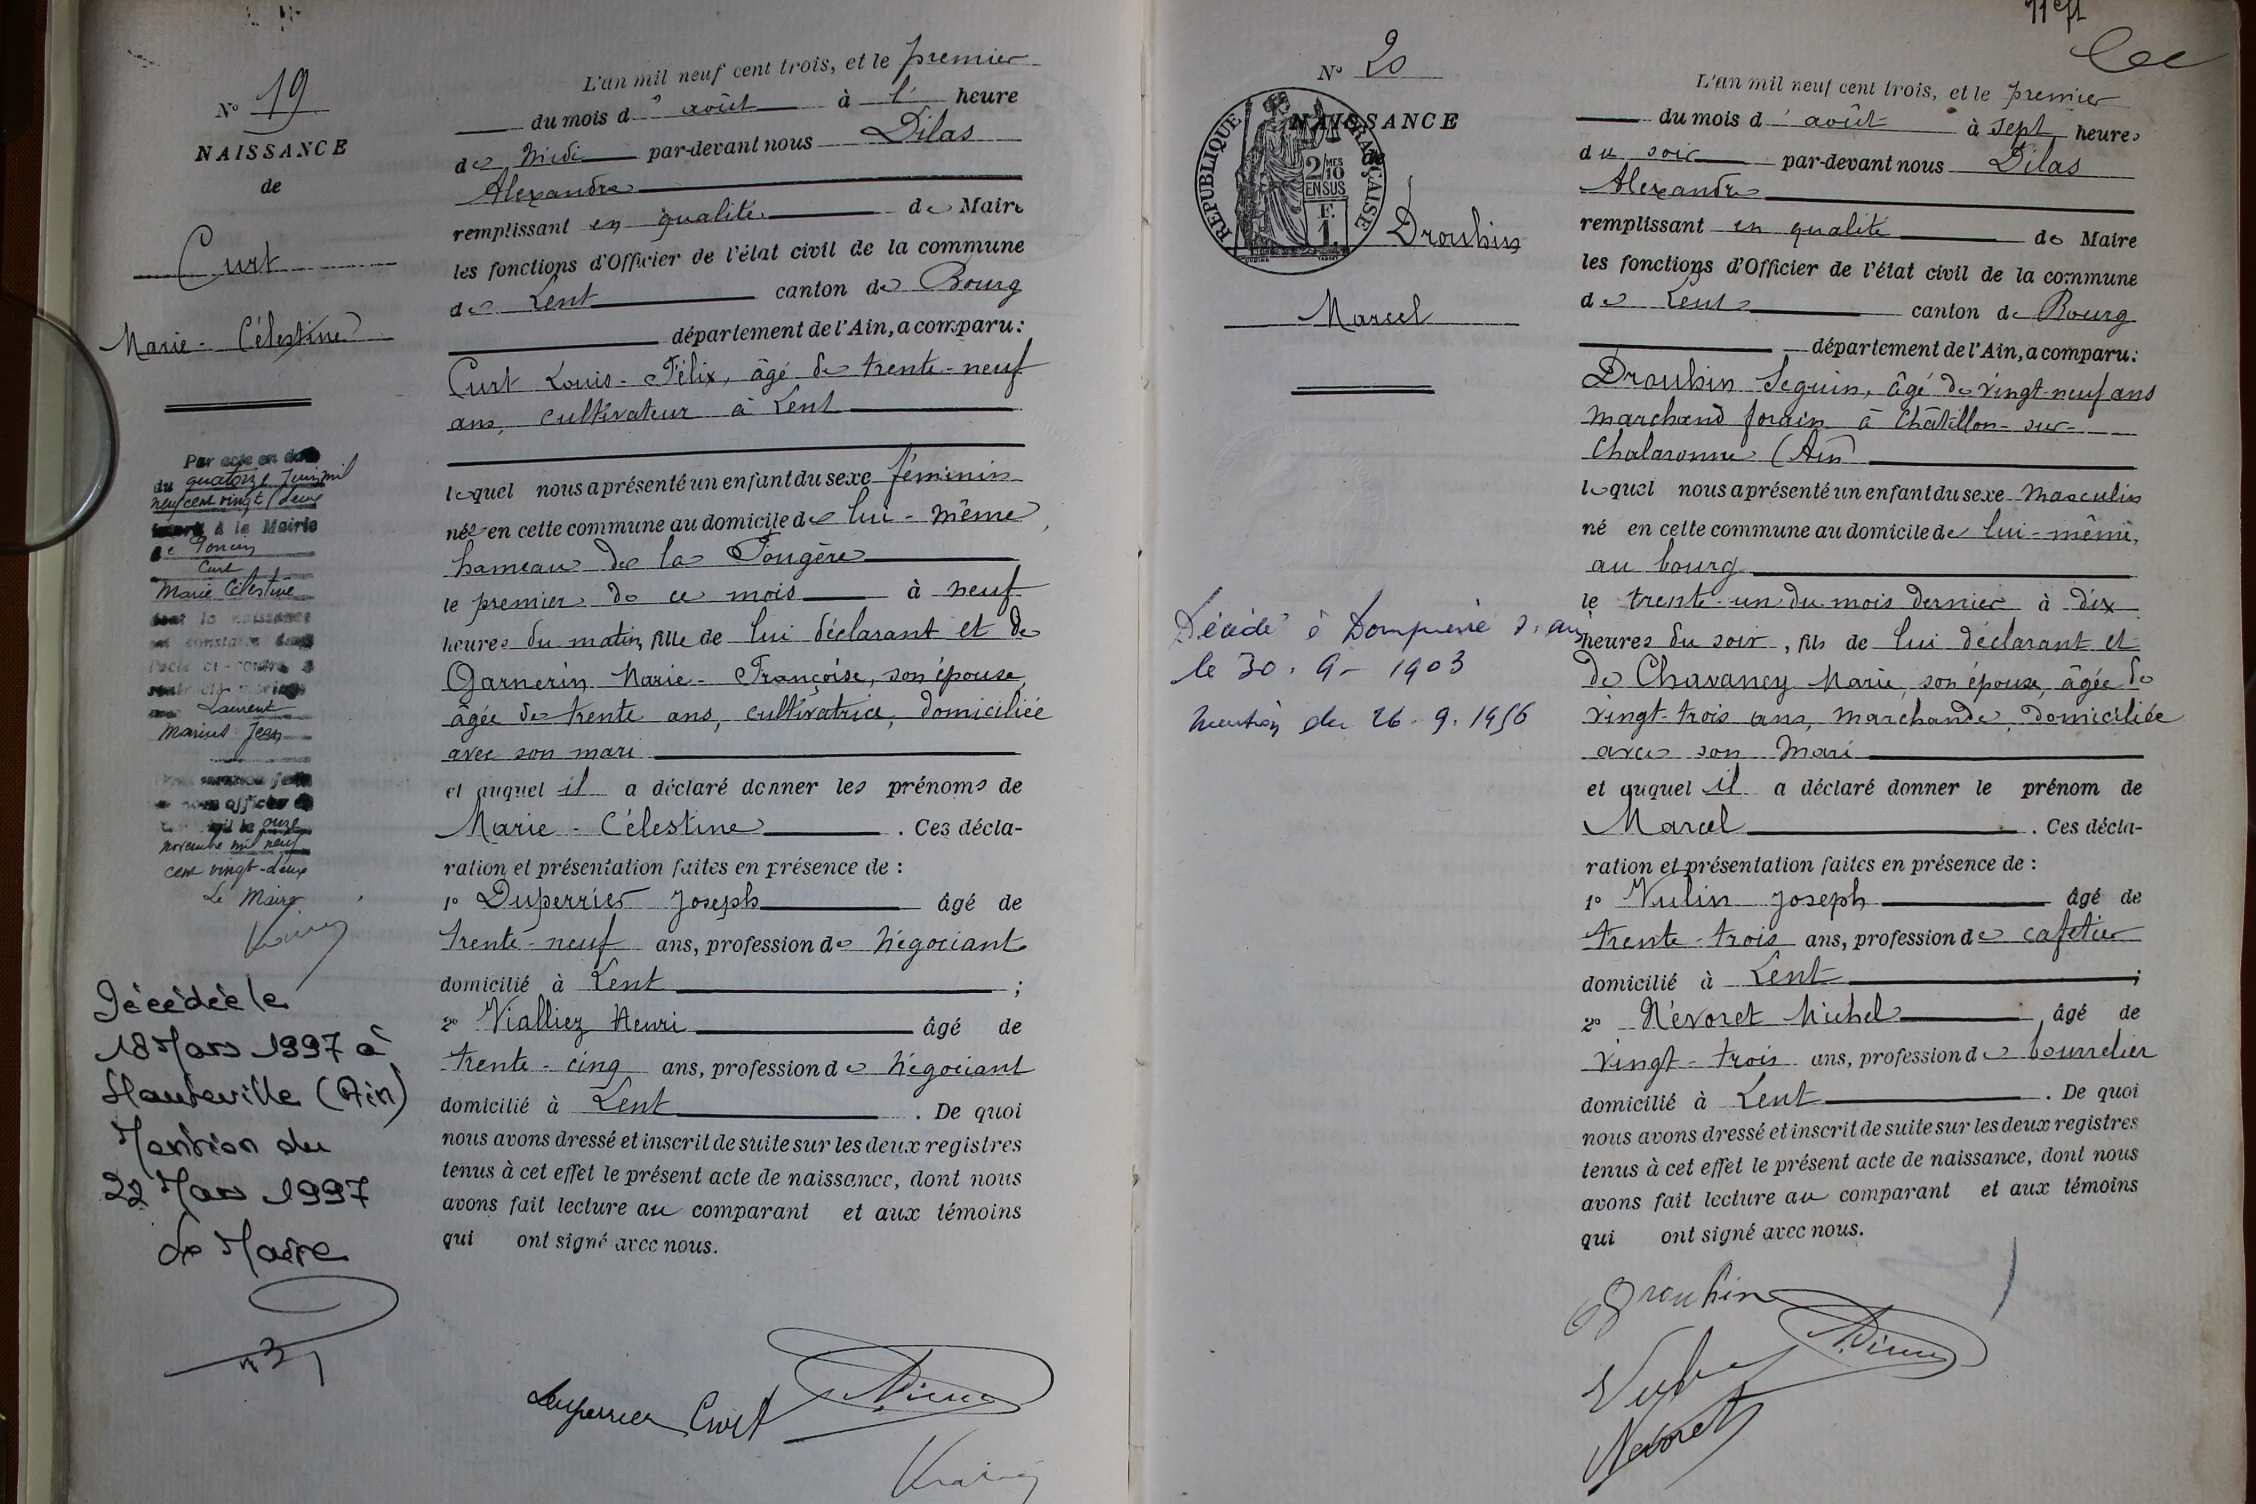 N° 19
NAISSANCE
de
Curt
Marie-Célestine
Par acte en date
du quatorze Juin mil
neuf cent vingt deux
à la Mairie
de
Curt
Marie Célestine
dont la naissance
est constatée dans
l'acte ci-contre a
contracté mariage
avec Laurent
Marius Jean
officier
le onze
novembre mil neuf
cent vingt-deux
Le Maire
Décédée le
18 Mars 1997 à
Hauteville (Ain)
Mention du
22 Mars 1997
Le Maire
L'an mil neuf cent trois, et le premier
du mois d'août à l' heure
de Midi par-devant nous Dilas
Alexandre
remplissant en qualité de Maire
les fonctions d'Officier de l'état civil de la commune
de Lent canton de Bourg
département de l'Ain, a comparu:
Curt Louis-Félix, âgé de trente-neuf
ans, cultivateur à Lent
lequel nous a présenté un enfant du sexe féminin
née en cette commune au domicile de lui-même,
hameau de la Fougère
le premier de ce mois à neuf
heures du matin, fille de lui déclarant et de
Garnerin Marie-Françoise, son épouse,
âgée de trente ans, cultivatrice, domiciliée
avec son mari
et auquel il a déclaré donner les prénoms de
Marie-Célestine. Ces décla-
ration et présentation faites en présence de :
1° Duperrier Joseph âgé de
trente-neuf ans, profession de négociant
domicilié à Lent ;
2° Vialliez Henri âgé de
trente-cinq ans, profession de négociant
domicilié à Lent. De quoi
nous avons dressé et inscrit de suite sur les deux registres
tenus à cet effet le présent acte de naissance, dont nous
avons fait lecture au comparant et aux témoins
qui ont signé avec nous.
Duperrier Curt
N° 20
NAISSANCE
de
RÉPUBLIQUE FRANÇAISE
2/10 MES
EN SUS
F.
1.
Drouhin
Marcel
Décédé à
le 30.9-1903
Mention du 26.9.1956
L'an mil neuf cent trois, et le premier
du mois d'août à sept heures
du soir par-devant nous Dilas
Alexandre
remplissant en qualité de Maire
les fonctions d'Officier de l'état civil de la commune
de Lent canton de Bourg
département de l'Ain, a comparu:
Drouhin Seguin, âgé de vingt-neuf ans
marchand forain à Châtillon-sur-
Chalaronne (Ain)
lequel nous a présenté un enfant du sexe masculin
né en cette commune au domicile de lui-même,
au bourg
le trente-un du mois dernier à dix
heures du soir, fils de lui déclarant et
de Chavancy Marie, son épouse, âgée de
vingt-trois ans, marchande, domiciliée
avec son mari
et auquel il a déclaré donner le prénom de
Marcel. Ces décla-
ration et présentation faites en présence de :
1° Vulin Joseph âgé de
trente-trois ans, profession de cafetier
domicilié à Lent ;
2° Névoret Michel âgé de
vingt-trois ans, profession de bourrelier
domicilié à Lent. De quoi
nous avons dressé et inscrit de suite sur les deux registres
tenus à cet effet le présent acte de naissance, dont nous
avons fait lecture au comparant et aux témoins
qui ont signé avec nous.
Drouhin
Névoret